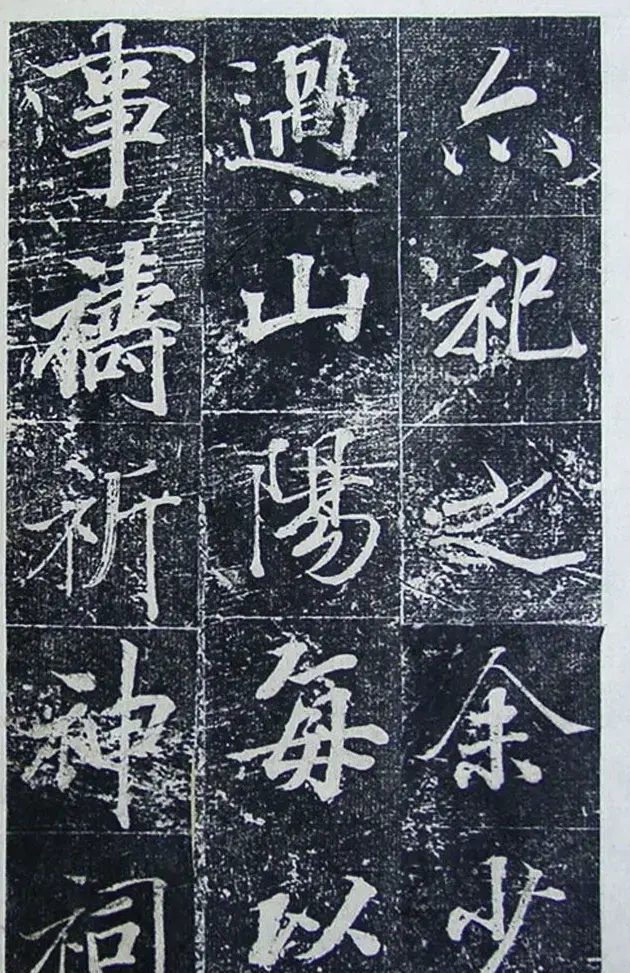 六祀之余少
過山陽每以
事禱祈神祠